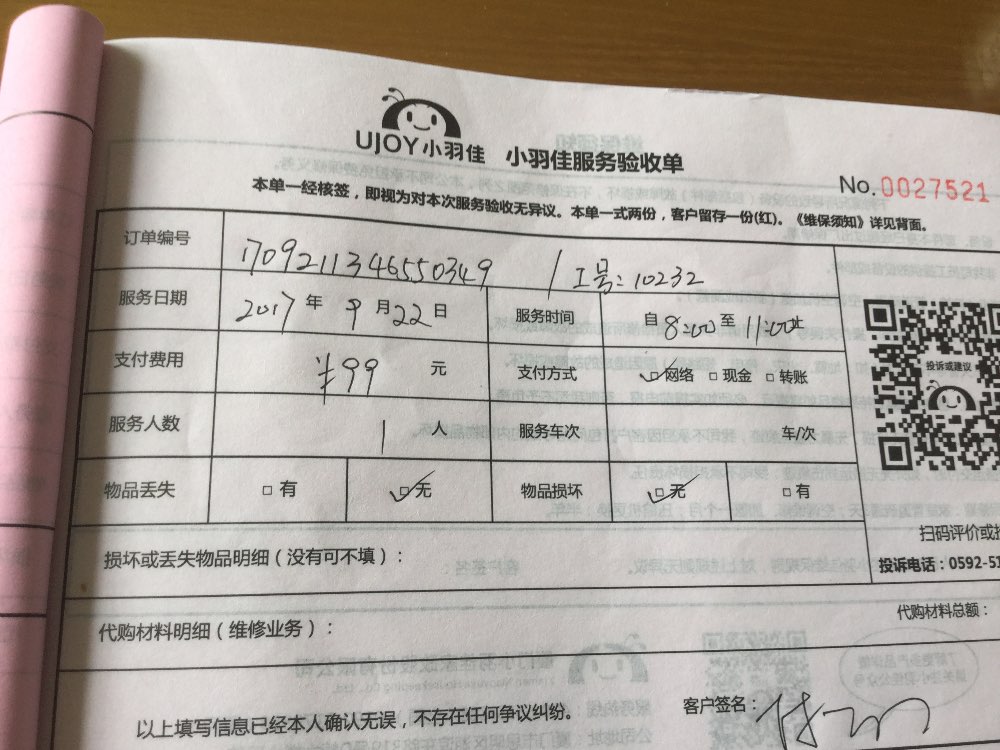 UJOY小羽佳 小羽佳服务验收单
No.0027521
本单一经核签，即视为对本次服务验收无异议。本单一式两份，客户留存一份(红)。《维保须知》详见背面。
订单编号 1709211346550349 / 工号：10232
服务日期 2017年9月22日 服务时间 自8:00至11:00止
支付费用 ¥99 元 支付方式 ☑网络 □现金 □转账
投诉或建议
服务人数 1 人 服务车次 车/次
物品丢失 □有 ☑无 物品损坏 ☑无 □有
扫码评价或
损坏或丢失物品明细（没有可不填）：
投诉电话：0592-51
代购材料明细（维修业务）： 代购材料总额：
以上填写信息已经本人确认无误，不存在任何争议纠纷。 客户签名：